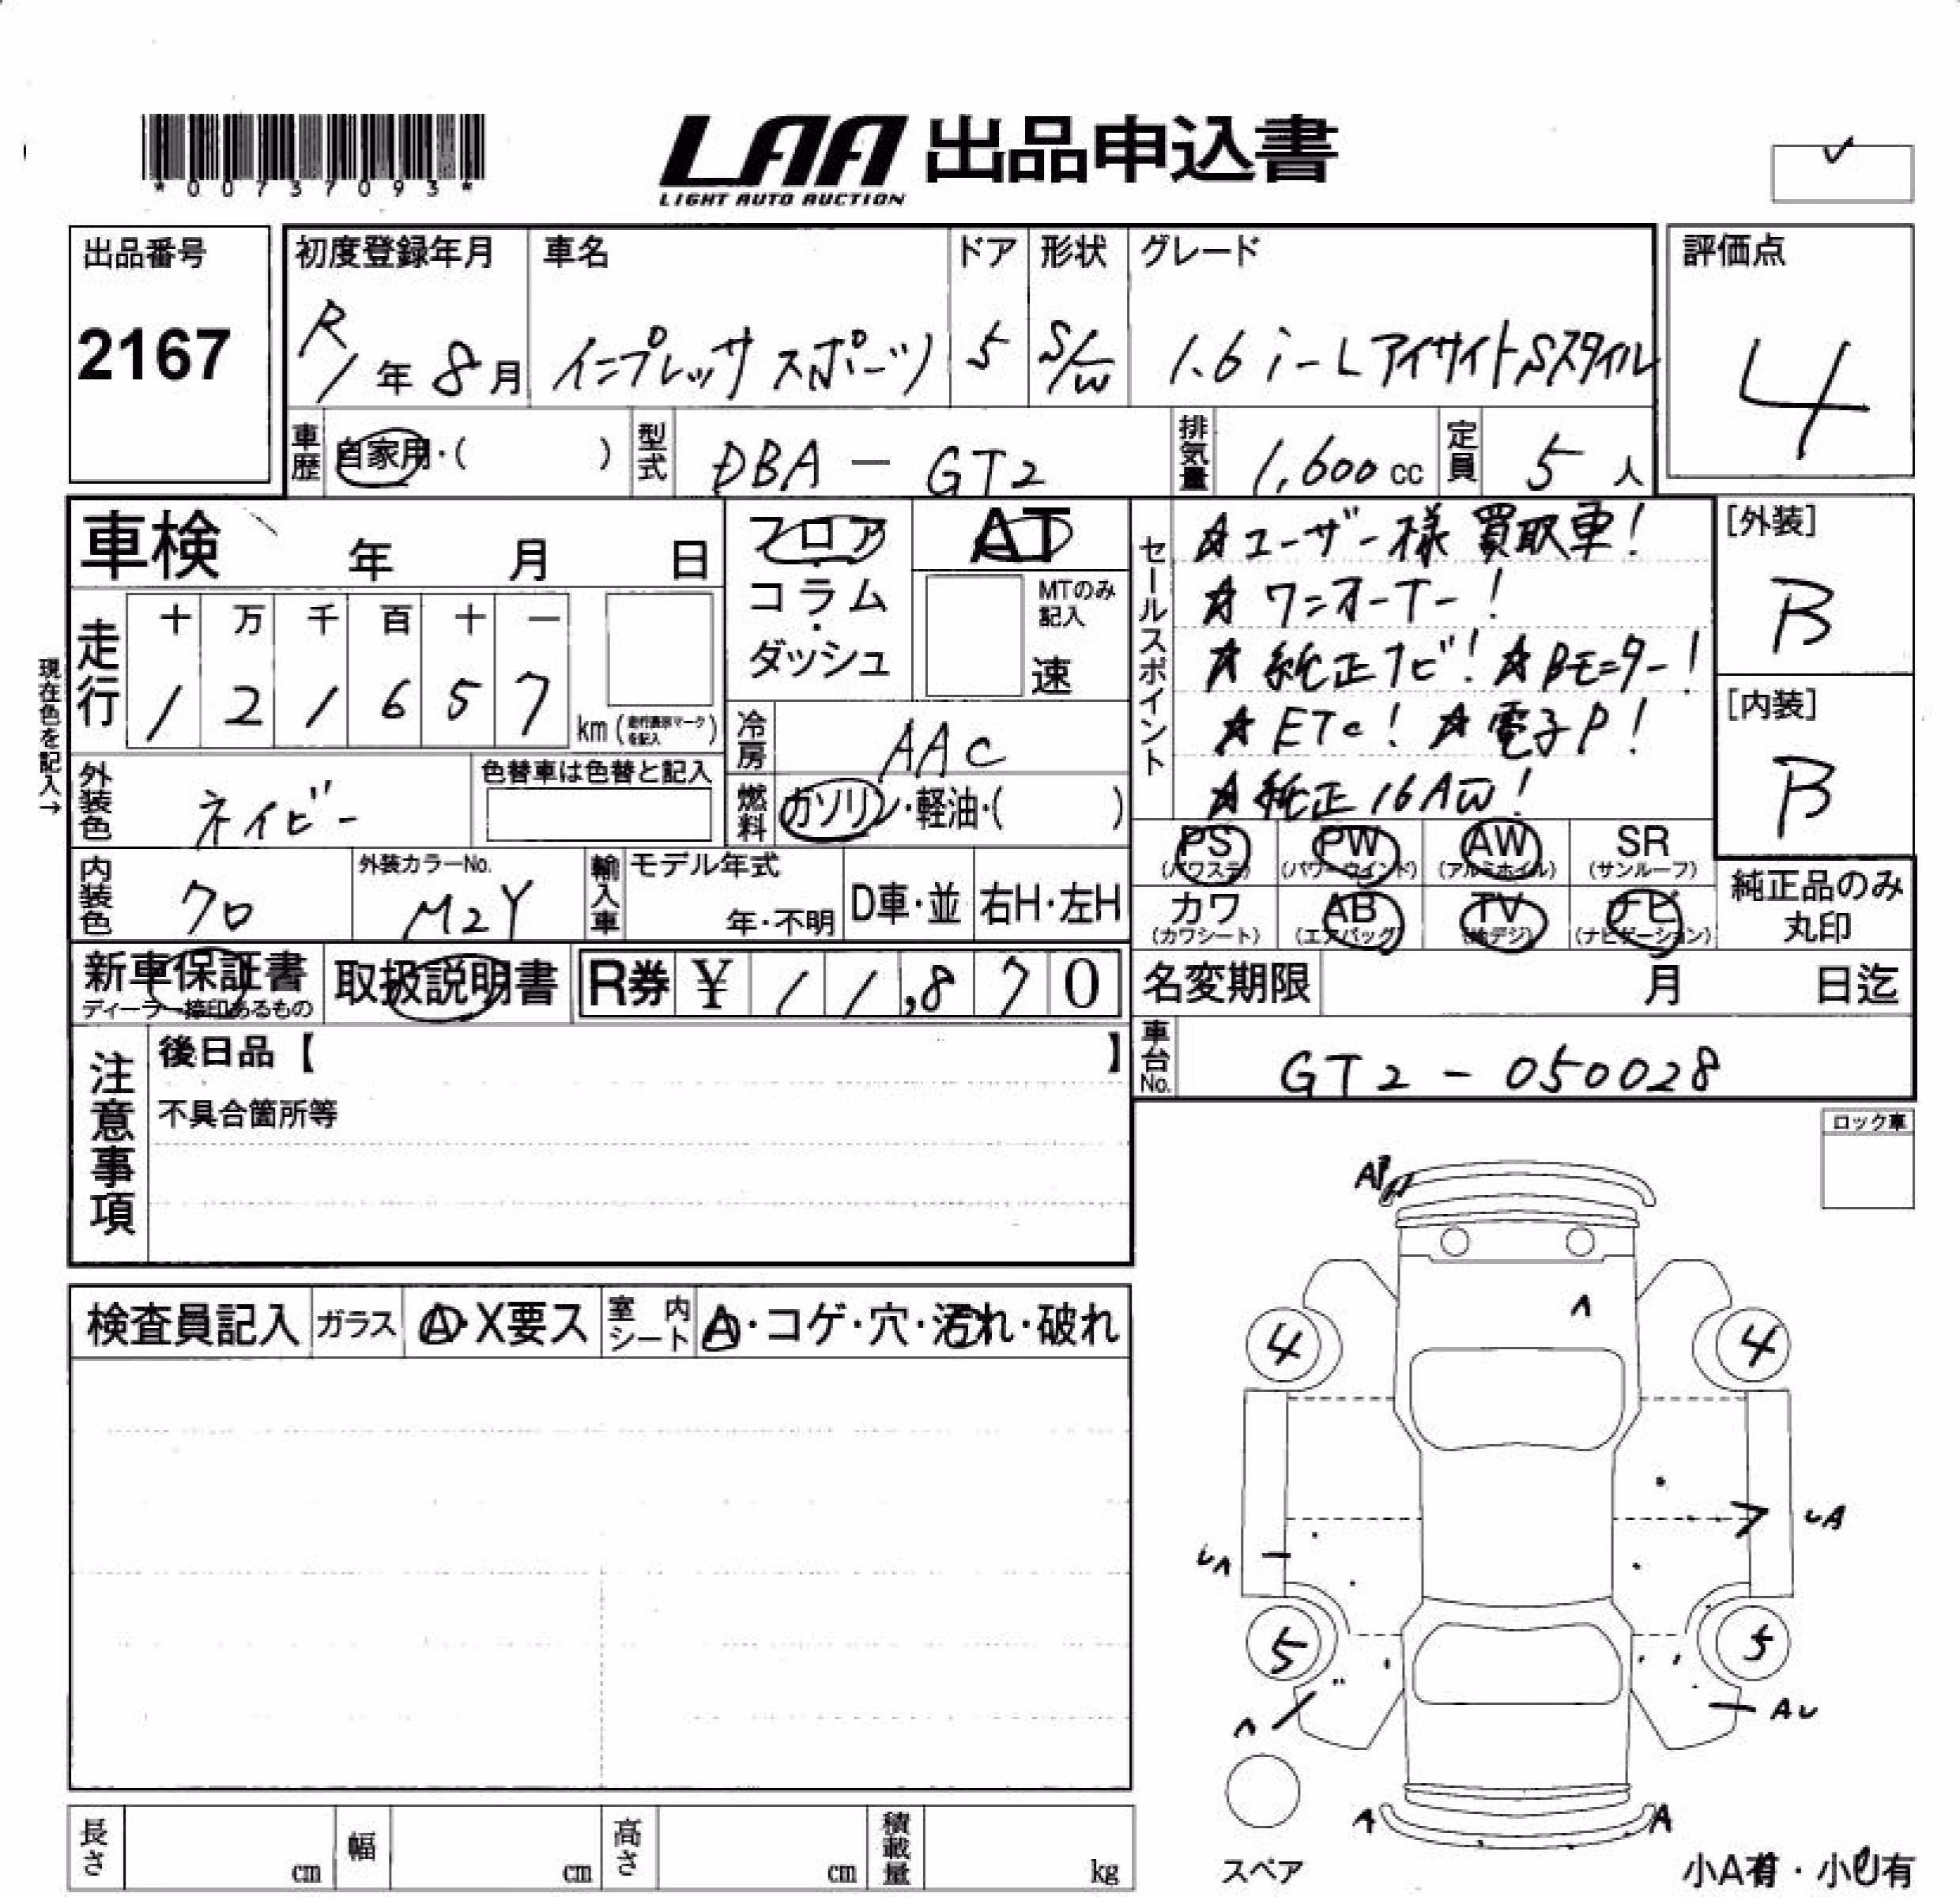 *00737093*
LAA 出品申込書
LIGHT AUTO AUCTION
✓
出品番号
2167
初度登録年月
R1年8月
車名
インプレッサ スポーツ
ドア
5
形状
S/W
グレード
1.6 i-L アイサイトSスタイル
評価点
4
車歴
自家用・( )
型式
DBA - GT2
排気量
1,600cc
定員
5人
車検 年 月 日
フロア
コラム
・
ダッシュ
AT
MTのみ
記入
速
走行
十 万 千 百 十 一
1 2 1 6 5 7
km(走行表示マークを記入)
現在色を記入→
冷房
AAC
外装色
ネイビー
色替車は色替と記入
燃料
ガソリン・軽油・( )
内装色
クロ
外装カラーNo.
M2Y
輸入車
モデル年式
年・不明
D車・並
右H・左H
セールスポイント
☆ユーザー様買取車!
☆ワンオーナー!
☆純正ナビ!☆Bモニター!
☆ETC!☆電子P!
☆純正16AW!
[外装]
B
[内装]
B
PS
(パワステ)
PW
(パワーウインド)
AW
(アルミホイル)
SR
(サンルーフ)
カワ
(カワシート)
AB
(エアバッグ)
TV
(地デジ)
ナビ
(ナビゲーション)
純正品のみ
丸印
新車保証書
ディーラー捺印あるもの
取扱説明書
R券 ¥ 11,870
名変期限 月 日迄
車台No.
GT2 - 050028
注意事項
後日品【 】
不具合箇所等
ロック車
検査員記入
ガラス
A・X要ス
室内シート
A・コゲ・穴・汚れ・破れ
AP
A
4
4
UA
UA
5
5
A
AU
A
A
スペア
小A有・小U有
長さ cm
幅 cm
高さ cm
積載量 kg